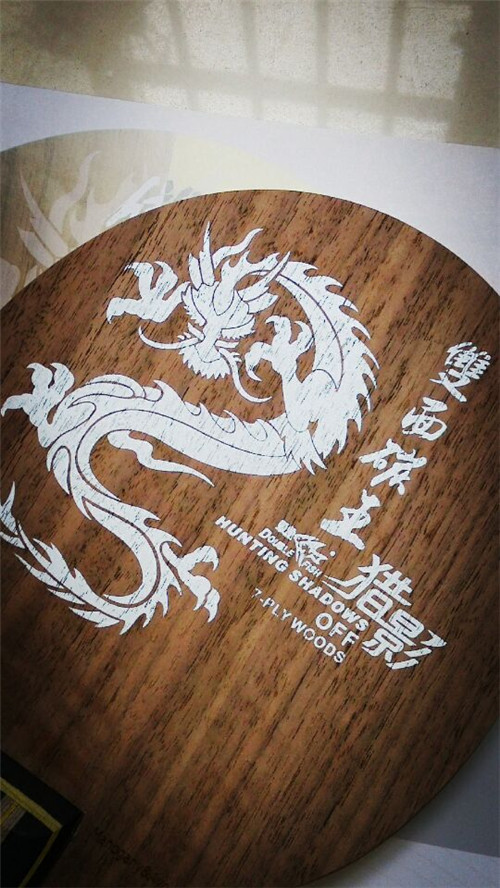 雙面碳王
猎影
DOUBLE FISH
HUNTING SHADOWS
OFF
7-PLYWOODS